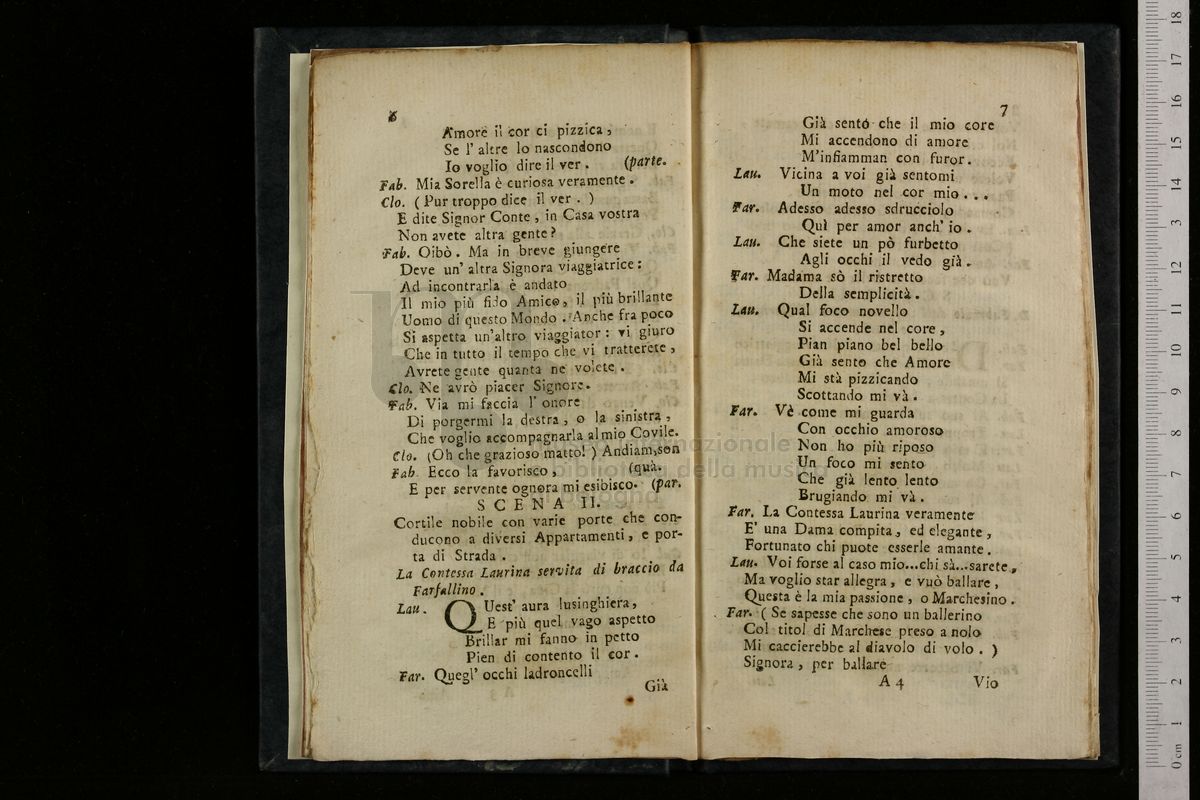 6
Amore il cor ci pizzica,
Se l' altre lo nascondono
Io voglio dire il ver. (parte.
Fab. Mia Sorella è curiosa veramente.
Clo. (Pur troppo dice il ver.)
E dite Signor Conte, in Casa vostra
Non avete altra gente?
Fab. Oibò. Ma in breve giungere
Deve un' altra Signora viaggiatrice:
Ad incontrarla è andato
Il mio più fido Amico, il più brillante
Uomo di questo Mondo. Anche fra poco
Si aspetta un'altro viaggiator: vi giuro
Che in tutto il tempo che vi tratterete,
Avrete gente quanta ne volete.
Clo. Ne avrò piacer Signore.
Fab. Via mi faccia l' onore
Di porgermi la destra, o la sinistra,
Che voglio accompagnarla al mio Covile.
Clo. (Oh che grazioso matto!) Andiam, son
Fab. Ecco la favorisco, (quà.
E per servente ognora mi esibisco. (par.
SCENA II.
Cortile nobile con varie porte che con-
ducono a diversi Appartamenti, e por-
ta di Strada.
La Contessa Laurina servita di braccio da
Farfallino.
Lau. QUest' aura lusinghiera,
E più quel vago aspetto
Brillar mi fanno in petto
Pien di contento il cor.
Far. Quegl' occhi ladroncelli
Già
7
Già sento che il mio core
Mi accendono di amore
M'infiamman con furor.
Lau. Vicina a voi già sentomi
Un moto nel cor mio...
Far. Adesso adesso sdrucciolo
Quì per amor anch' io.
Lau. Che siete un pò furbetto
Agli occhi il vedo già.
Far. Madama sò il ristretto
Della semplicità.
Lau. Qual foco novello
Si accende nel core,
Pian piano bel bello
Già sento che Amore
Mi stà pizzicando
Scottando mi và.
Far. Vè come mi guarda
Con occhio amoroso
Non ho più riposo
Un foco mi sento
Che già lento lento
Brugiando mi và.
Far. La Contessa Laurina veramente
E' una Dama compita, ed elegante,
Fortunato chi puote esserle amante.
Lau. Voi forse al caso mio...chi sà...sarete,
Ma voglio star allegra, e vuò ballare,
Questa è la mia passione, o Marchesino.
Far. (Se sapesse che sono un ballerino
Col titol di Marchese preso a nolo
Mi caccierebbe al diavolo di volo.)
Signora, per ballare
A 4 Vio